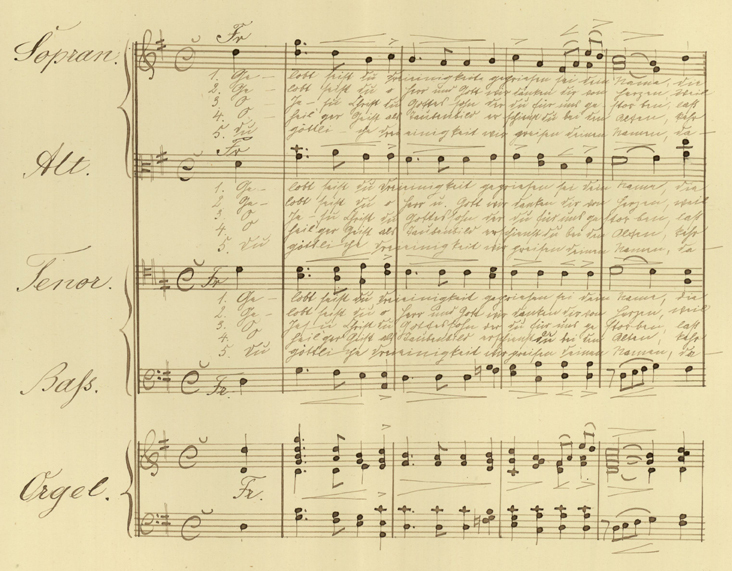 Fr
Sopran.
1. Ge - lobt seist du Dreieinigkeit gepriesen sei dein Name, die
2. Ge - lobt seist du o Herr und Gott wir danken dir von Herzen, weil
3. O Je - su Christ du Gottes Sohn der du für uns ge stor ben, laß
4. O heil'ger Geist als Taubenbild erschienst du bei dem Alten,
5. Du göttli - che Dreieinigkeit wir preisen deinen Namen, da -
Fr
Alt.
1. Ge - lobt seist du Dreieinigkeit gepriesen sei dein Name, die
2. Ge - lobt seist du o Herr u. Gott wir danken dir von Herzen, weil
3. O Je - su Christ du Gottes Sohn der du für uns ge stor ben, laß
4. O heil'ger Geist als Taubenbild erschienst du bei dem Alten,
5. Du göttli che Dreieinigkeit wir preisen deinen Namen, da -
Tenor.
Fr
1. Ge - lobt seist du Dreieinigkeit gepriesen sei dein Name, die
2. Ge - lobt seist du o Herr und Gott wir danken dir von Herzen, weil
3. O Jesu Christ du Gottes Sohn der du für uns ge stor ben, laß
4. O heil'ger Geist als Taubenbild erschienst du bei dem Alten,
5. Du göttli che Dreieinigkeit wir preisen deinen Namen, da -
Bass.
Fr.
Orgel.
Fr.